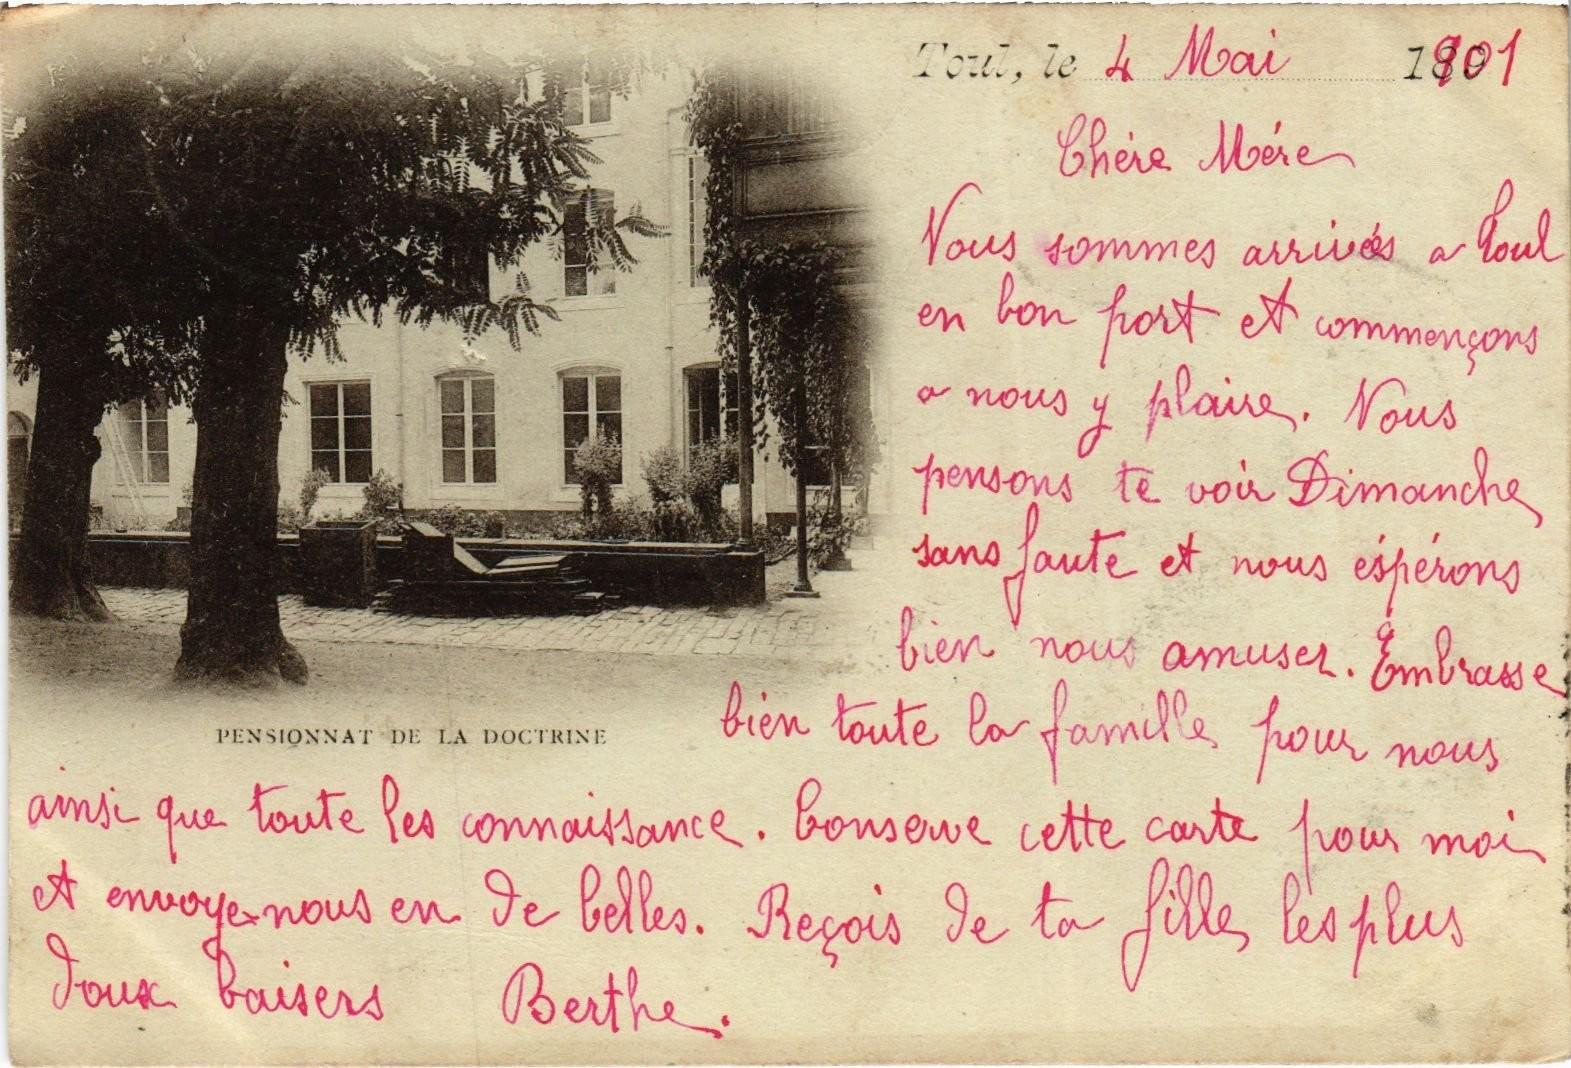 Toul, le 4 Mai 1901
Chère Mére
Nous sommes arrivés a Toul
en bon port et commençons
a nous y plaire. Nous
pensons te voir Dimanche
sans faute et nous éspérons
bien nous amuser. Embrasse
bien toute la famille pour nous
PENSIONNAT DE LA DOCTRINE
ainsi que toute les connaissance. Conserve cette carte pour moi
et envoye-nous en de belles. Reçois de ta fille les plus
doux baisers Berthe.